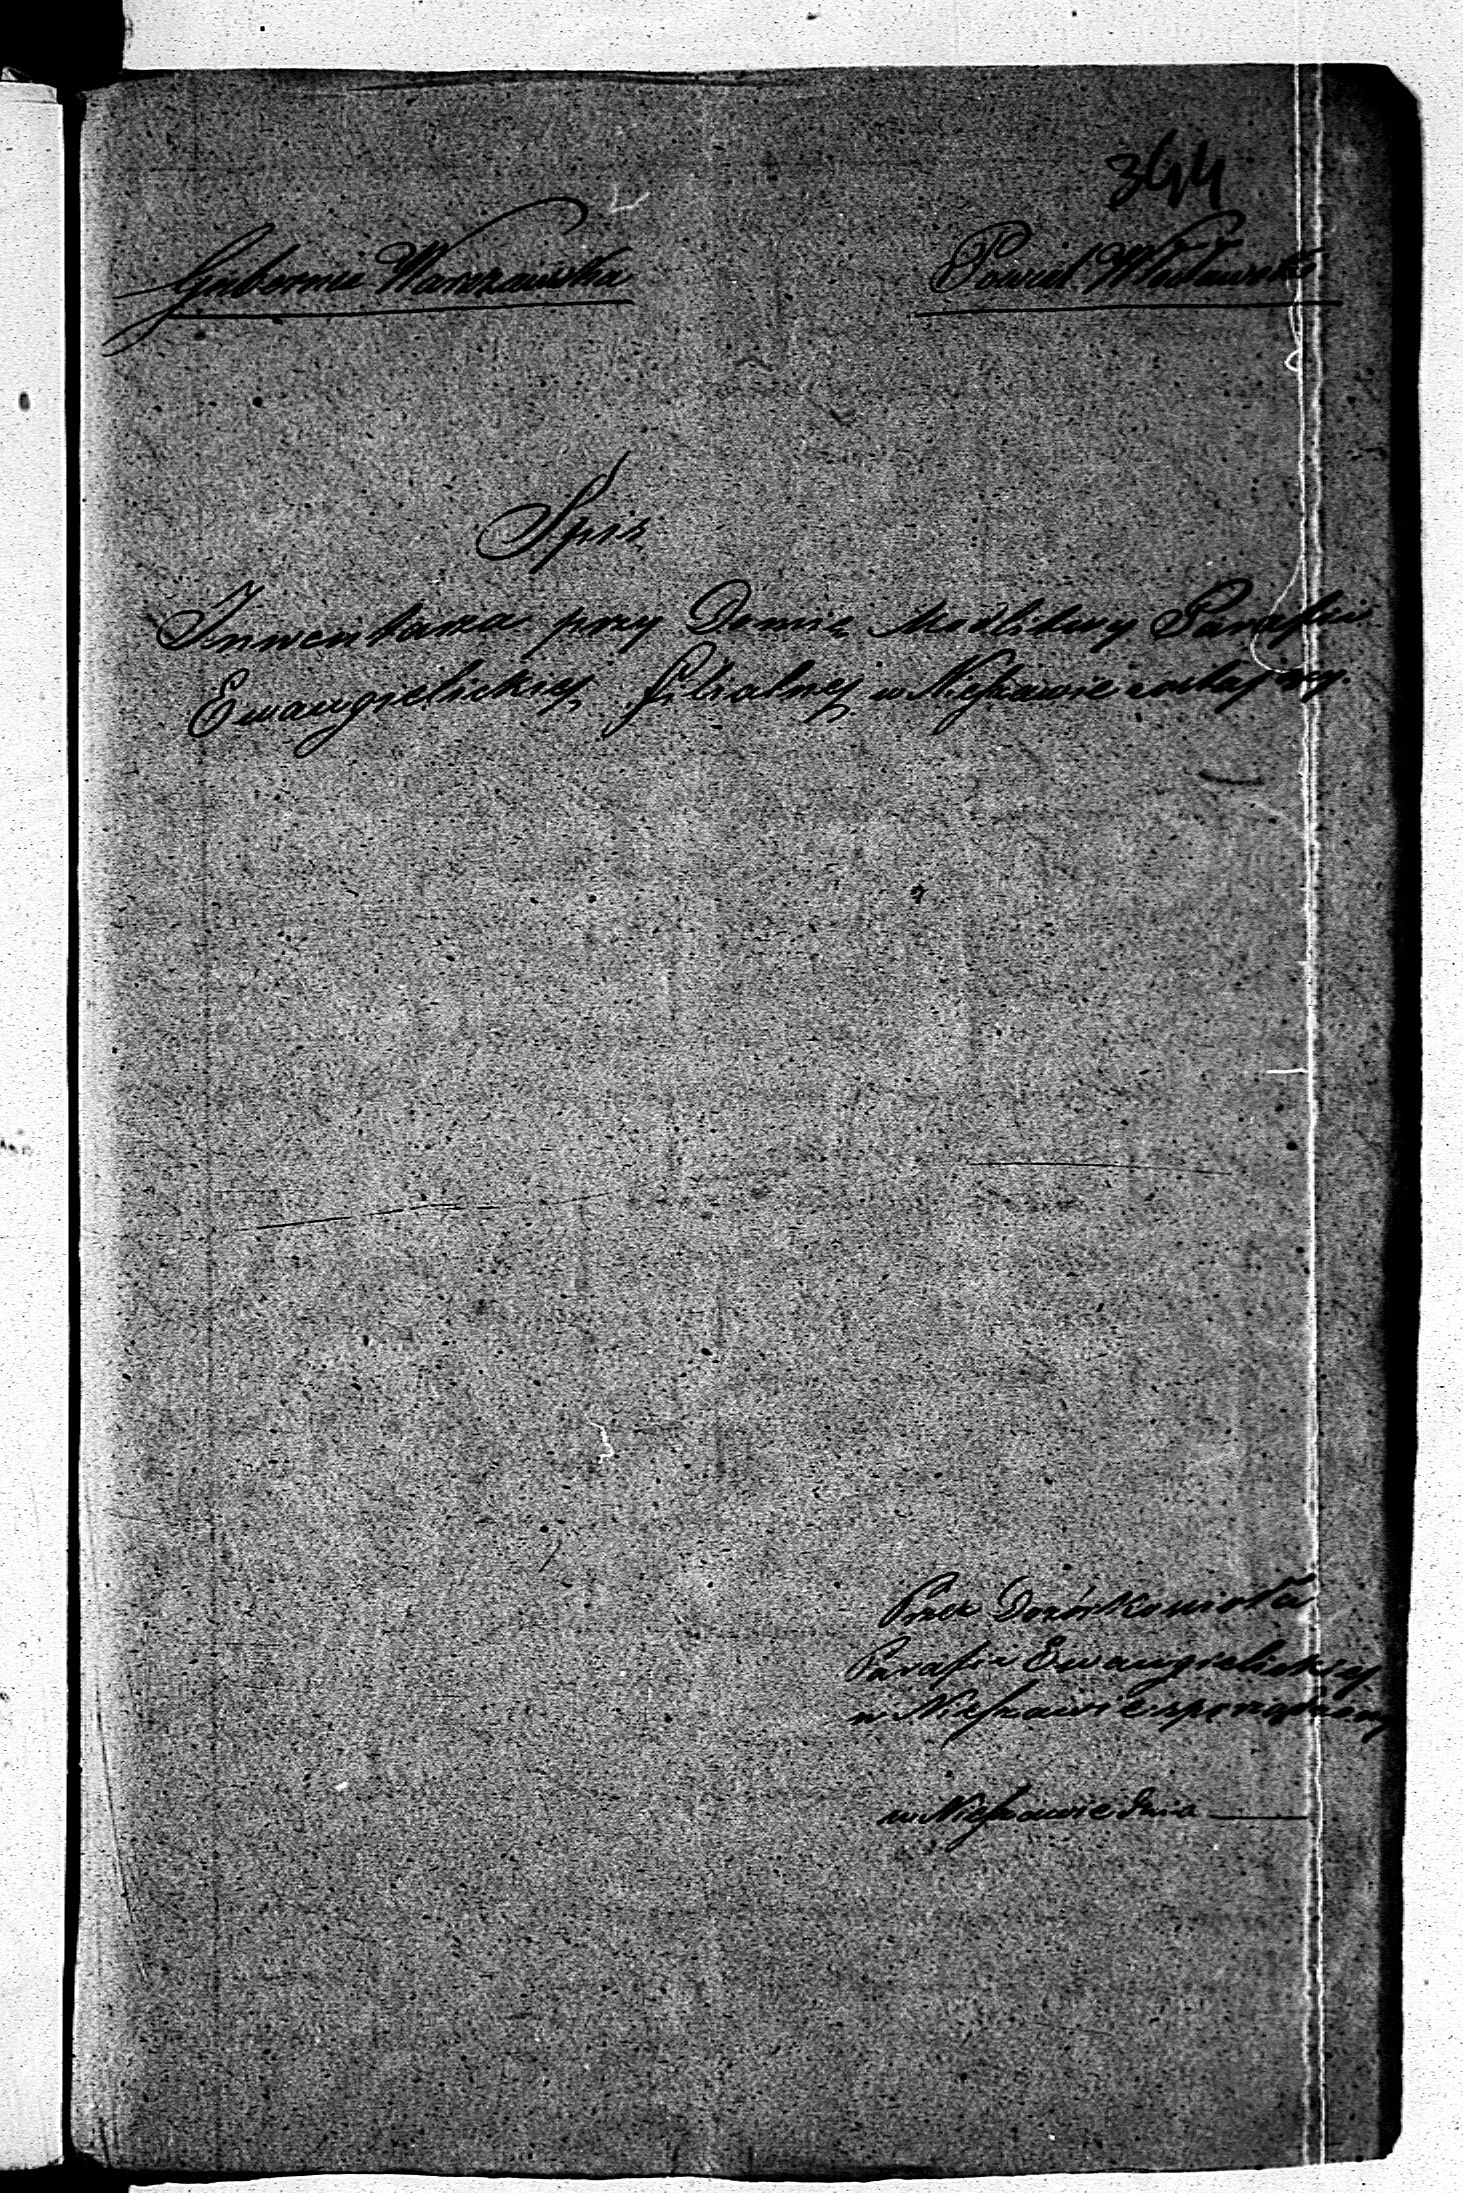 344
Gubernia Warszawska Powiat Włocławski
Spis
Inwentarza przy Domie Modlitwy Parafii
Ewangielickiej filialnej w Nieszawie
Przez Dozór Kościoła
Parafii Ewangielickiej
w Nieszawie sporządzony
w Nieszawie dnia